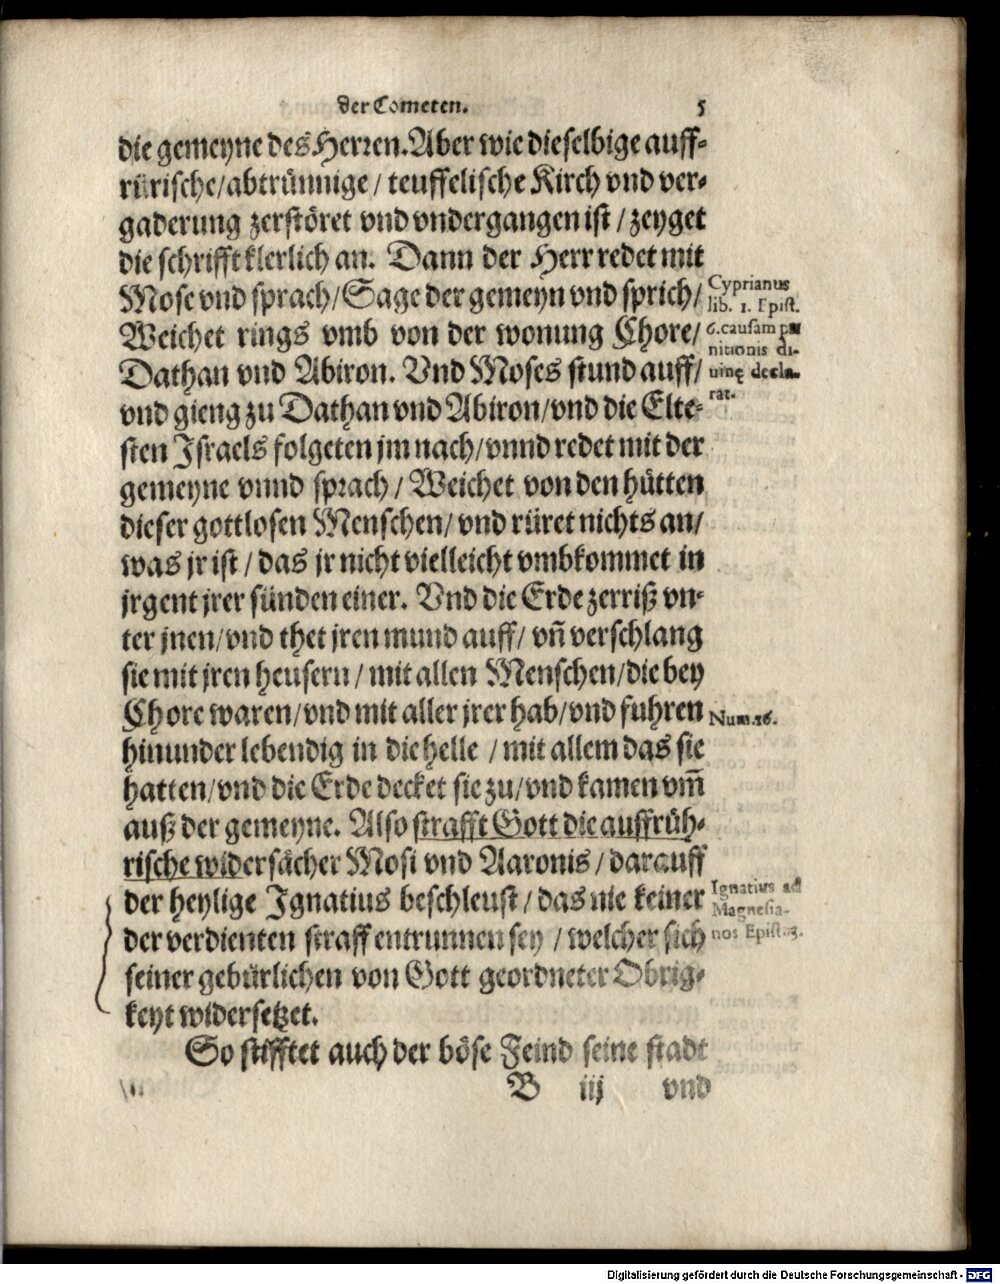 der Cometen. 5
die gemeyne des Herren. Aber wie dieselbige auff-
rürische/abtrünnige/ teuffelische Kirch vnd ver-
gaderung zerstöret vnd vndergangen ist/ zeyget
die schrifft klerlich an. Dann der Herr redet mit
Mose vnd sprach/ Sage der gemeyn vnd sprich/
Weichet rings vmb von der wonung Chore/
Dathan vnd Abiron. Vnd Moses stund auff/
vnd gieng zu Dathan vnd Abiron/vnd die Elte-
sten Israels folgeten jm nach/vnnd redet mit der
gemeyne vnnd sprach/ Weichet von den hütten
dieser gottlosen Menschen/ vnd rüret nichts an/
was jr ist/ das jr nicht vielleicht vmbkommet in
jrgent jrer sünden einer. Vnd die Erde zerriß vn-
ter jnen/vnd thet jren mund auff/ vñ verschlang
sie mit jren heusern/ mit allen Menschen/die bey
Chore waren/vnd mit aller jrer hab/vnd fuhren
hinunder lebendig in die helle/ mit allem das sie
hatten/vnd die Erde decket sie zu/vnd kamen vm̃
auß der gemeyne. Also strafft Gott die auffrüh-
rische widersächer Mosi vnd Aaronis/ darauff
der heylige Ignatius beschleust/ das nie keiner
der verdienten straff entrunnen sey/ welcher sich
seiner gebürlichen von Gott geordneter Obrig-
keyt widersetzet.
So stifftet auch der böse Feind seine stadt
B iij vnd
Cyprianus
lib. 1. Epist.
6. causam pu
nitionis di-
uinę decla-
rat.
Num. 16.
Ignatius ad
Magnesia-
nos Epist. 3.
Digitalisierung gefördert durch die Deutsche Forschungsgemeinschaft - DFG